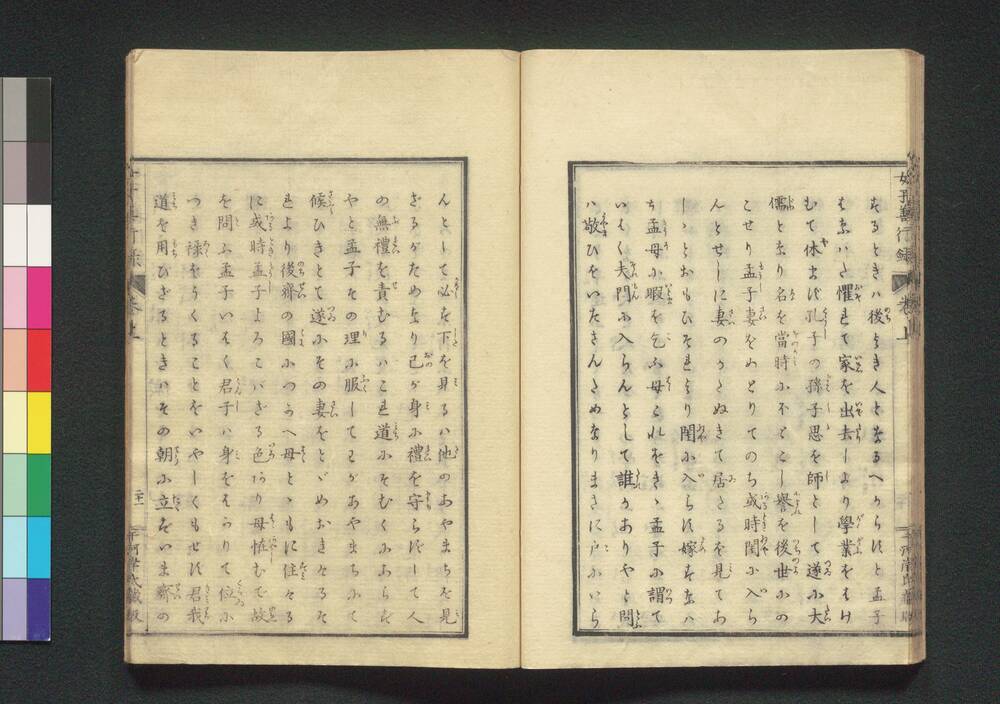 なるときハ後よき人となるへからすと孟子
はなハた懼れて家を出去しより學業をはけ
むて休ます孔子の孫子思を師として遂に大
儒となり名を當時にあこし譽を後世にの
こせり孟子妻をめとりてのち或時閨に入ら
んとせしに妻のかたぬきて居たるを見てあ
しゝとおもひそれより閨に入らす嫁すなハ
ち孟母に暇を乞ふ母これをきゝ孟子に謂て
いはく夫門に入らんとして誰かありやと問
ハ敬ひをいたさんためなりまさに戸にいら
んとして必を下を見るハ他のあやまちを見
さるがためなり已が身に禮を守らすして人
の無禮を責むるハこれ道にそむくにあらす
やと孟子その理に服してわがあやまちにて
候ひきとて遂にその妻をとゞめおきける
それより後齋の國につかへ母とゝもに住ける
に或時孟子よろこハざる色あり母怪むで故
を問ふ孟子いはく君子ハ身をはかりて位に
つき禄をうくることをいやしくもせす君我
道を用ひざるときハその朝に立ずいま齋の
卷上
二十一